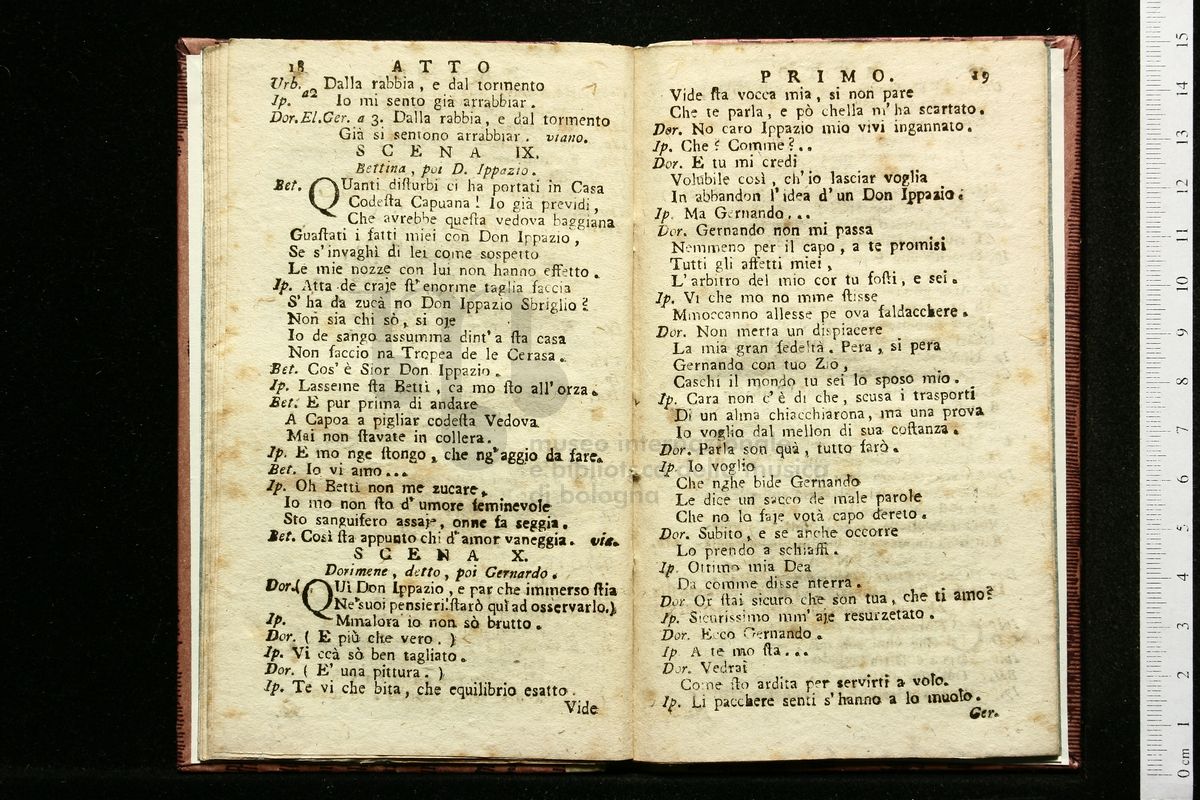 18 ATTO
Urb. Dalla rabbia, e dal tormento
a2
Ip. Io mi sento già arrabbiar.
Dor.El.Ger. a 3. Dalla rabbia, e dal tormento
Già si sentono arrabbiar. viano.
SCENA IX.
Bettina, poi D. Ippazio.
Bet. QUanti disturbi ci ha portati in Casa
Codesta Capuana! Io già previdi,
Che avrebbe questa vedova baggiana
Guastati i fatti miei con Don Ippazio,
Se s'invaghì di lei come sospetto
Le mie nozze con lui non hanno effetto.
Ip. Atta de craje st'enorme taglia faccia
S'ha da zucà no Don Ippazio Sbriglio?
Non sia chi sò, si oje
Io de sango assumma dint'a sta casa
Non faccio na Tropea de le Cerasa.
Bet. Cos'è Sior Don Ippazio.
Ip. Lasseme sta Betti, ca mo sto all'orza.
Bet. E pur prima di andare
A Capoa a pigliar codesta Vedova
Mai non stavate in collera.
Ip. E mo nge stongo, che ng'aggio da fare.
Bet. Io vi amo...
Ip. Oh Betti non me zucare,
Io mo non sto d'umore feminevole
Sto sanguifero assaje, onne fa seggia.
Bet. Così sta appunto chi d'amor vaneggia. via.
SCENA X.
Dorimene, detto, poi Gernardo.
Dor.( QUì Don Ippazio, e par che immerso stia
Ne'suoi pensieri! starò quì ad osservarlo.)
Ip. Mmalora io non sò brutto.
Dor. ( E più che vero. )
Ip. Vi ccà sò ben tagliato.
Dor. ( E' una pittura. )
Ip. Te vi che bita, che equilibrio esatto.
Vide
PRIMO. 19
Vide sta vocca mia, si non pare
Che te parla, e pò chella m'ha scartato.
Dor. No caro Ippazio mio vivi ingannato.
Ip. Che? Comme?..
Dor. E tu mi credi
Volubile così, ch'io lasciar voglia
In abbandon l'idea d'un Don Ippazio.
Ip. Ma Gernando...
Dor. Gernando non mi passa
Nemmeno per il capo, a te promisi
Tutti gli affetti miei,
L'arbitro del mio cor tu fosti, e sei.
Ip. Vi che mo no mme stisse
Mmoccanno allesse pe ova faldacchere.
Dor. Non merta un dispiacere
La mia gran fedeltà. Pera, si pera
Gernando con tuo Zio,
Caschi il mondo tu sei lo sposo mio.
Ip. Cara non c'è di che, scusa i trasporti
Di un alma chiacchiarona, ma una prova
Io voglio dal mellon di sua costanza.
Dor. Parla son quà, tutto farò.
Ip. Io voglio
Che nghe bide Gernando
Le dice un sacco de male parole
Che no lo faje votà capo dereto.
Dor. Subito, e se anche occorre
Lo prendo a schiaffi.
Ip. Ottimo mia Dea
Da comme disse nterra.
Dor Or stai sicuro che son tua, che ti amo?
Ip. Sicurissimo mm'aje resurzetato.
Dor. Ecco Gernando.
Ip A te mo sta...
Dor. Vedrai
Come sto ardita per servirti a volo.
Ip. Li pacchere senti s'hanno a lo muolo.
Ger.
museo internazionale
e biblioteca della musica
di bologna
0 cm 1 2 3 4 5 6 7 8 9 10 11 12 13 14 15